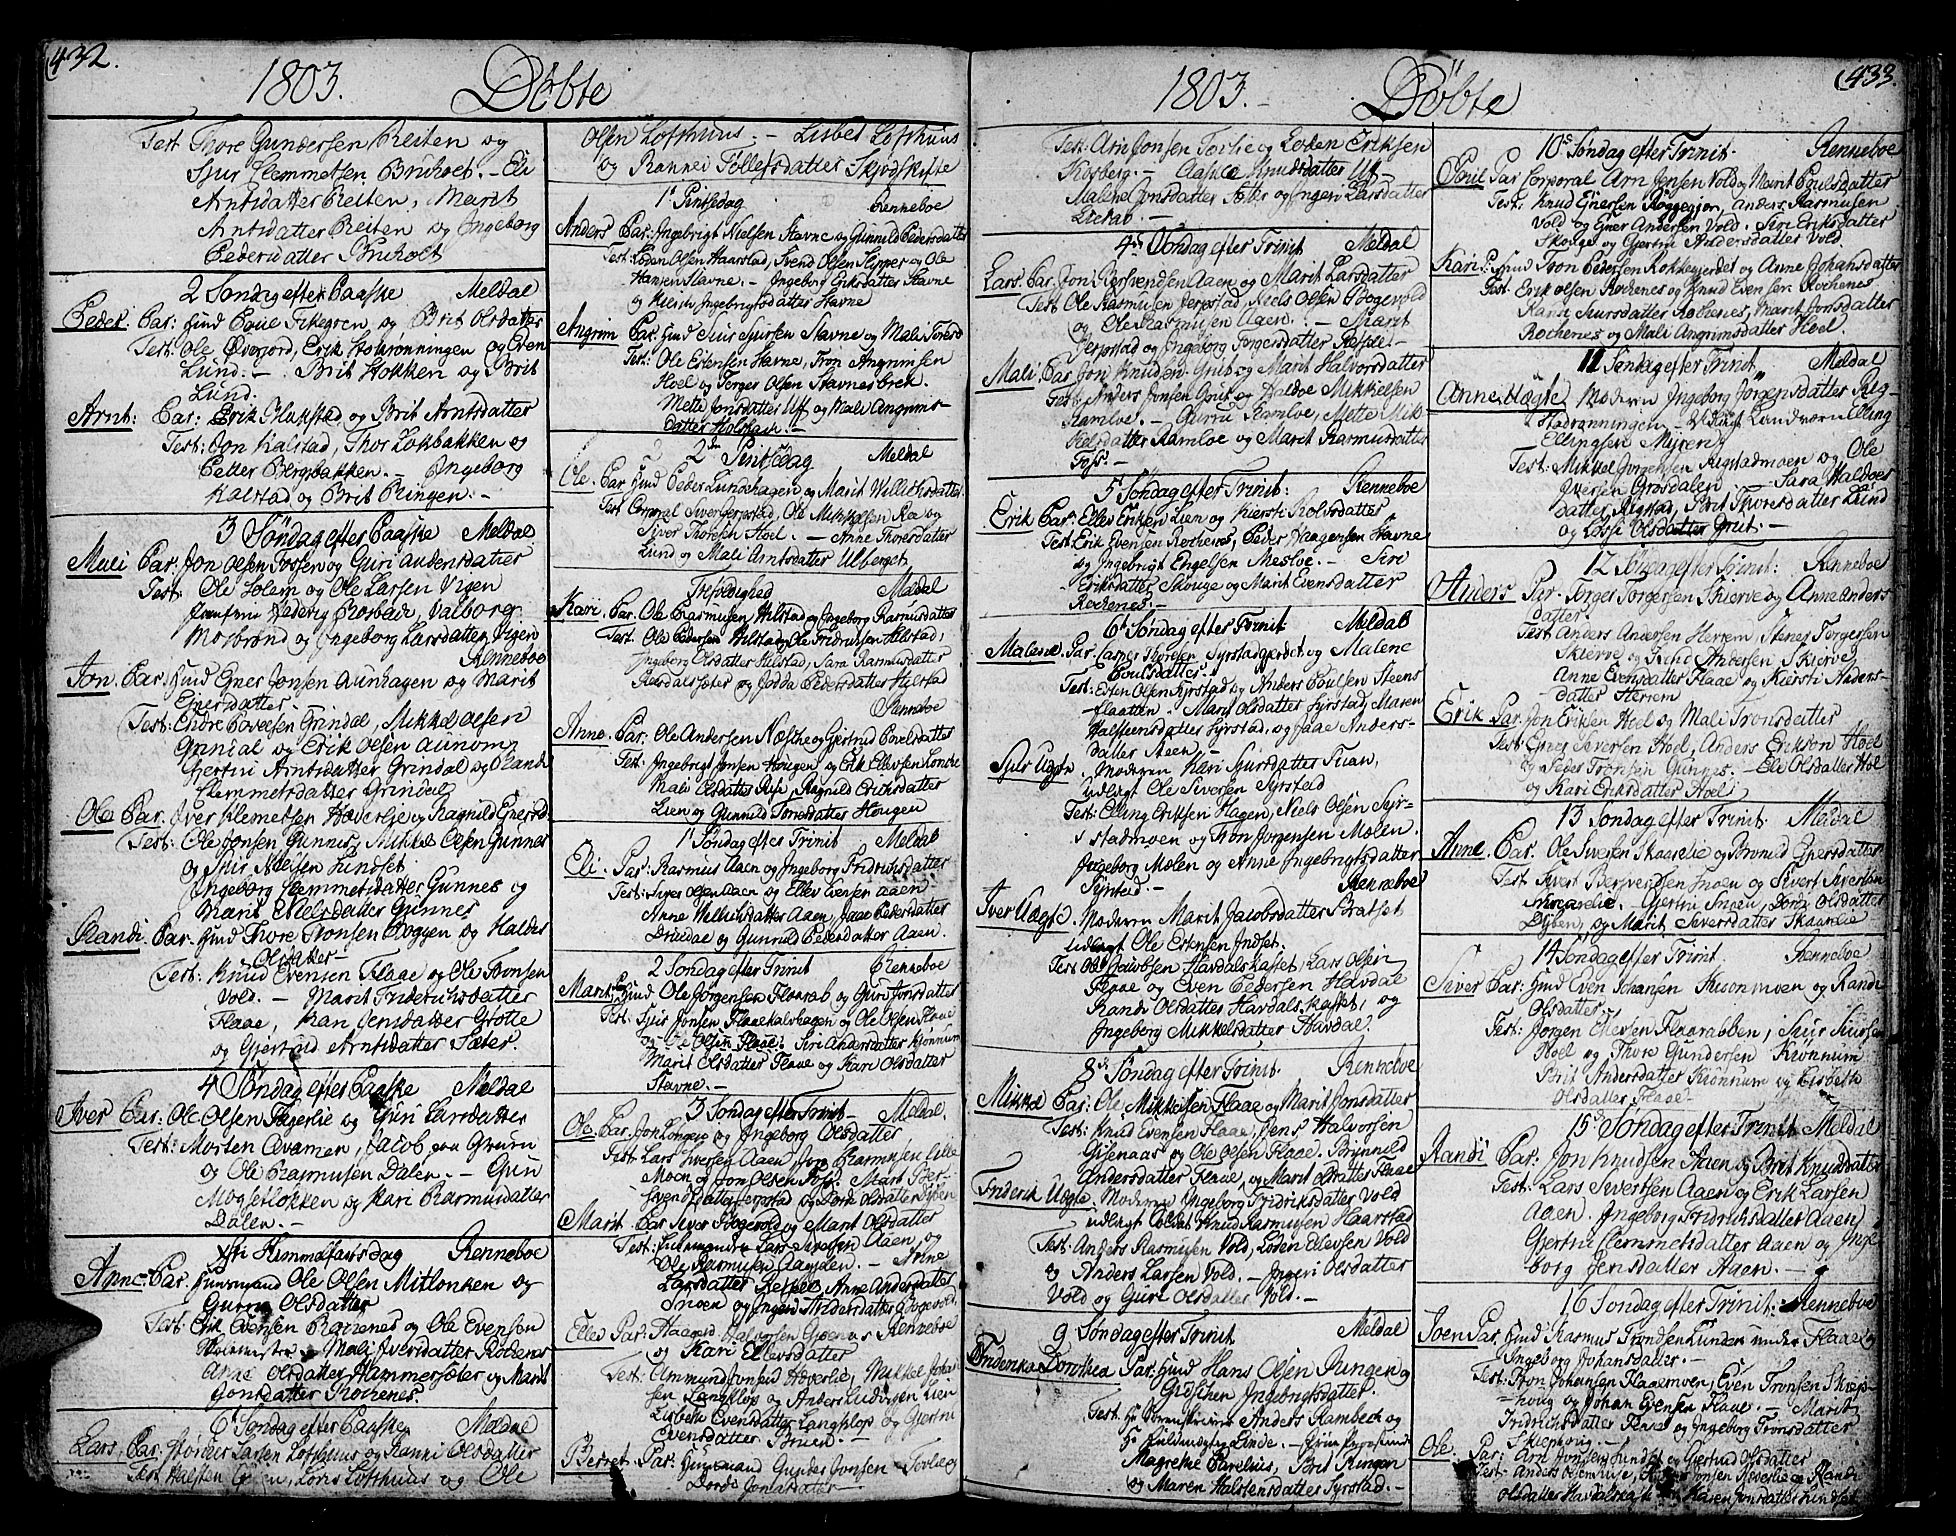 432.
1803. Döbte
Test. Thore Gundersen Reiten og
Sjur Clemmetsen Bruholt. - Eli
Arntsdatter Reiten, Marit
Arntsdatter Reiten og Ingeborg
Pedersdatter Bruholt
2 Søndag efter Paaske Meldal
Peder Par: Huusmd Poul og Brit Olsdatter
Test: Ole Øverjord, Erik Hokrønningen og Even
Lund. - Brit Hokken og Brit
Lund.
Arnt: Par: Erik Halstad og Brit Arntsdatter
Test: Jon Kalstad, Thor Lokbakken og
Petter Bergsbakken. - Ingeborg
Kalstad og Brit Ringen. -
3 Søndag efter Paaske Meldal
Mali Par. Jon Olsen Fossen og Guri Andersdatter
Test: Ole Solem og Ole Larsen Vigen
Mosbrønd og Ingeborg Larsdatter Vigen
Renneboe
Jon. Par. Huusmd Ener Jonsen Aunhagen og Marit
Enersdatter.
Test: Endre Povelsen Grindal, Mikkel Olsen
Grindal og Erik Olsen Aunom
Gjertru Arntsdatter Grindal og Randi
Clemmetsdatter Grindal
Ole Par. Iver Klemetsen Haverlie og Ragnild Enersd
Test: Ole Jonsen Gunnes, Mikkel Olsen Gunnes
og Sjur Nelsen Lundset
Ingeborg Clemmetsdatter Gunnes og
Marit Nelsdatter Gunnes
Randi. Par. Huusmd Thore Tronsen Roggen og Haldis
Olsdatter
Test: Knud Evensen Flaae og Ole Tronsen
Vold. - Marit Friderichsdatter
Flaae, Kari Jensdatter Grotte
og Gjertrud Arntsdatter Sæter.
4 Søndag efter Paaske Meldal
Iver Par: Ole Olsen Fagerlie og Guri Larsdatter
Test: Morten Avamen, Jacob paa Grum
og Ole Rasmusen Dalen. - Guri
Mogseløkken og Kari Rasmusdatter
Dalen. -
Christi Himmelfartsdag Renneboe
Anne. Par. Huusmand Ole Olsen Mitlonken og
Guru Olsdatter
Test: Erik Evensen Rochenes og Ole Evensøn
Mali Iversdatter Rockenes
Ane Olsdatter Hammersæter og Marit
Jonsdatter Rochenes.
6 Søndag efter Paaske Meldal
Lars, Par. Størker Larsen Lofthuus og Ranni Olsdatter
Test Halsten Loris Lofthuus og Ole
Olsen Lofthuus. - Lisbet Lofthuus
og Rannei Tøllefsdatter Skjødskifte
1ste Pintsedag Renneboe
Anders Par: Ingebrigt Nielsen Stavne og Gunnild Pedersdatter
Test: Loden Olsen Haarstad, Svend Olsen Slipper og Ole
Hansen Stavne. - Ingeborg Eriksdatter Stavne
og Kirsti Ingebrigtsdatter Stavne
Angrim Par. Huusmd Siur Sjursen Stavne og Mali Toresd
Test: Ole Estensen Stavne, Tron Angrimsen
Hoel og Torger Olsen Stavnesbrek.
Mette Jonsdatter Uf og Mali Angrims-
datter Holstad. -
2den Pintsedag Meldal
Ole. Par Huusmd Peder Lundshagen og Marit Willichsdatter
Test Corporal Siver Jerpstad, Ole Mikkelsen Roe og
Siver Thoresen Hoel. - Anne Thoresdatter
Lund og Mali Arntsdatter Ulberget
Trefoldighed Meldal
Kari. Par. Ole Rasmusen Hilstad og Ingeborg Rasmusdatter
Test: Ole Pedersen Hilstad og Ole Fridrichsen Hilstad,
Ingeborg Olsdatter Hilstad, Sara Rasmusdatter
Resdalssæter og Jodda Pedersdatter Hilstad
Renneboe
Anne. Par: Ole Andersen Næsthe og Gjertrud Povelsdatter
Test. Ingebrigt Jonsen Hougen og Erik Ellevsen Lonche
Mali Olsdatter Rise, Ragnild Erichsdatter
Lien og Gunnild Tomesdatter Hougen
1 Søndag efter Trinit Meldal
Eli Par: Rasmus Aaen og Ingeborg Fridrichsdatter
Test: Siver Olsen Aaen og Ellev Iversen Aaen
Anne Willichsdatter Aaen, Jaae Pedersdatter
Druedae og Gunnild Pedersdatter Aaen.
2 Søndag efter Trinit Renneboe
Marit Par. Huusmd Ole Jørgensen Flaaræb og Guri Jonsdatter
Test: Sjur Jonsen Flaaekalvhagen og Ole Olsen Flaae
og Ole Olsen Flaae. Siri Andersdatter Krønnum
Marit Olsdatter Flaae og Kari Olsdatter
Stavne. -
3 Søndag efter Trinit - Meldal,
Ole. Par. Jon Longeie og Ingeborg Olsdatter
Test: Lars Iversen Aaen, Jon Rasmusen Lille
Moen og Jon Olsen Foss. Marit
Svendsdatter Jerpstad og Dordi Olsdatter
Marit. Par Siver Bogevold og Marit Olsdatter
Test: Lars Iversen Aaen, og
Ole Rasmusen. - Anne
Larsdatter Resse, Anne Andersdatter
Snoen og Ingrid Andersdatter Bogevold,
Ellev Par: Haagen Halvorsen Gisnaas Renneboe
og Kari Ellevsdatter
Test: Ammund Jonsen Haverlie, Mikkel Johan-
sen Langklop og Anders Ludvigsen Lien
Lisbeth Evensdatter Langklop og Gjertru
Evensdatter Bruen. -
Berret Par. Huusmand Gunder Jonsen Torlie og
Dordi Jonsdatter
433
1803. - Döbte
Test: Arn Jonsen Torlie og Loden Eriksen
Kosberg. - Aasice Knudsdatter Uf -
Malene Jonsdatter Totter og Ingeri Larsdatter
4de Søndag efter Trinit Meldal
Lars. Par. Jon Bersvendsen Aaen og Marit Larsdatter
Test Ole Rasmusen Jerpstad, Niels Olsen Bogevold
og Ole Rasmusen Aaen. - Marit
Jerpstad og Ingeborg Jorgersdatter Resse. -
Mali Par Jon Knudsen Gris og Marit Halvorsdatter
Test: Anders Jonsen Gris og Haldoe Mikkelsen
Ramloe. - Gurru Ramloe, Mette Mik-
kelsdatter Ramloe og Marit Rasmusdatter
Foss. -
5 Søndag efter Trinit: Renneboe
Erik Par: Ellev Eriksen Lien og Kiersti Rolvsdatter
Test: Erik Evensen Rochenes, Peder Haagensen Stavne
og Ingebrigt Engelsen Mesloe. - Siri
Eriksdatter Skouge og Marit Evensdatter
Rochenes. -
6te Søndag efter Trinit Meldal
Malene Par. Casper Thoresen Syrstadgjerdet og Malene
Poulsdatter.
Test: Esten Olsen Syrstad og Anders Poulsen Steens
flaatten. Marit Olsdatter Syrstad, Maren
Halsteensdatter Syrstad, og Jaae Anders-
datter Steen. -
Sjur Uægte. Moderen Kari Sjursdatter Tuan,
udlagt Ole Siversen Syrstad
Test: Elling Eriksen Hagen, Niels Olsen Syr-
stadmoen og Tron Jørgensen Mælen.
Ingeborg Mælen og Anne Ingebrigtsdatter
Syrstad. Renneboe
Iver Uægte. Moderen Marit Jacobsdatter Bratset
udlagt Ole Estensen Indset.
Test: Ole Jacobsen Havdalskasset, Lars Olsen
Flaae og Even Pedersen Havdal
Randi Olsdatter Havdalskasset, og
Ingeborg Mikkelsdatter Havdal.
8de Søndag efter Trinit. Renneboe
Mikkel Par: Ole Mikkelsen Flaae og Marit Jonsdatter
Test: Knud Evensen Flaae, Jens Halvorsen
Gisnaas og Ole Olsen Flaae. Brynnild
Andersdatter Flaae, og Marit Olsdatter Flaae
Friderik Uægte. Moderen Ingeborg Fridriksdatter Vold
udlagt Soldat Knud Rasmusen Haarstad
Test: Anders Rasmusen Vold, Loden Ellevsen Vold
og Anders Larsen Vold. - Ingeri Olsdatter
Vold og Guri Olsdatter Vold. -
9 Søndag efter Trinit Meldal
Fridericka Dorothea Par. Huusmd Hans Olsen Ringen og
Gidschen Ingebrigtsdatter.
Test. Hr Anders Rambech og
Hr Linde. -
Magrethe Parelius, Brit Ringen
og Maren Halstensdatter Syrstad. -
10de Søndag efter Trinit. Renneboe
Poul Par Corporal Arn Jonsen Vold og Marit Poulsdatter
Test: Knud Enersen Roggegjer, Anders Rasmusen
Vold og Ener Andersen Vold. Siri Eriksdatter
Skouge og Gjertru Andersdatter Vold.
Kari P. Huusmd Tron Pedersen Rokkegjerdet og Anne Johansdatter
Test: Erik Olsen Rochenes og Knud Evensen Rochenes
Randi Siursdatter Rochenes, Marit Jonsdatter
Rochenes og Mali Angrimsdatter Hoel.
11 Søndag efter Trinit, Meldal
Anne, Uægte Moderen Ingeborg Jørgensdatter Rig-
stadrønningen - Udlagt Landværn Elling
Ellingsen Myren.
Test: Mikkel Jørgensen Rigstadmoen og Ole
Iversen Grøsdalen. - Sara Haldoes
datter Rigstad, Brit Thoresdatter Lund
og Losse Olsdatter Grut. -
12 Søndag efter Trinit: Renneboe
Anders Par. Torger Torgersen Skierve og Anne Anders
datter.
Test: Anders Andersen Herrem Stener Torgersen
Skierve og Andersen Skierve
Anne Evensdatter Flaae og Kiersti Anders-
datter Herrem
Erik Par. Jon Eriksen Hoel og Mali Tronsdatter
Test: Ener Siversen Hoel, Anders Erikson Hoel
og Peder Tronsen Gunnes. - Eli Olsdatter Hoel
og Kari Eriksdatter Hoel.
13 Søndag efter Trinit. Meldal
Anne Par. Ole Siversen Skaarelie og Bronild Enersdatter
Test: Sivert Bersvendsen Snoen og Sivert Siversøn
Skaarelie. - Gjertru Snoen, Dordi Olsdatter
Dyben, og Marit Siversdatter Skaarelie
14 Søndag efter Trinit. Renneboe
Siver Par: Huusmd Even Johansen Husonmoen og Randi
Olsdatter.
Test: Jørgen Ellevsen Flaarabben, Sjur Siursen
Hoel og Thore Gundersen Krønnum
Brit Andersdatter Krønnum og Lisbeth
Olsdatter Flaae. -
15de Søndag efter Trinit Meldal
Randi Par: Jon Knudsen Aaen og Brit Knudsdatter
Test: Lars Sivertsen Aaen og Erik Larsen
Aaen. Ingeborg Fridrichsdatter Aaen,
Gjertru Clemmetsdatter Aaen og Inge-
borg Jensdatter Aaen. -
16 Søndag efter Trinit: Renneboe
Joen Par. Huusmd Rasmus Trondsen Lunden under Flaae og
Ingeborg Johansdatter. -
Test: Tron Johansen Flaaemoen, Even Tronsen Skiep-
houg og Johan Evensen Flaae. - Marit
Fridrichsdatter Flaae og Ingeborg Tronsdatter
Skiephoug. -
Ole. Par. Arn Jonsen Lundset og Gjertrud Olsdatter
Test: Anders Jonsen Haverlie og Randi
Olsdatter Havdalskasset - Karen Jonsdatter Lundset